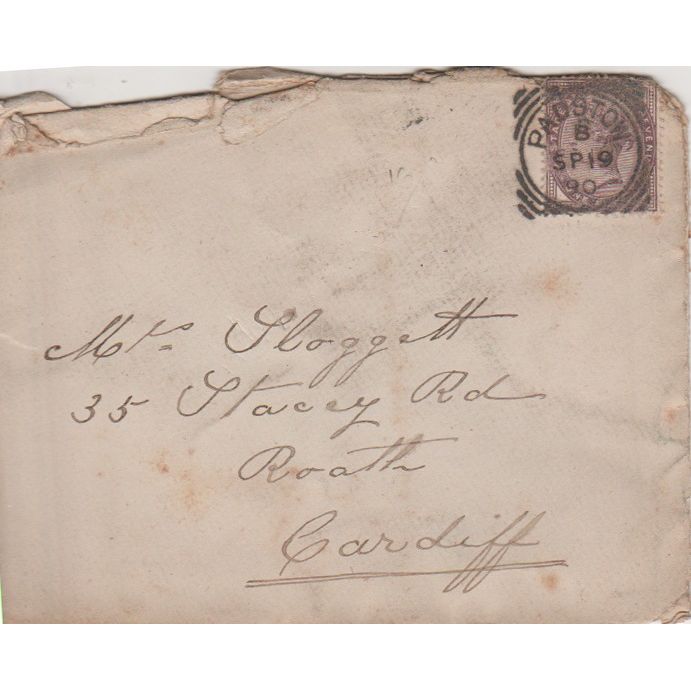 PADSTOW
B
SP 19
90
Mrs. Sloggett
35 Stacey Rd
Roath
Cardiff